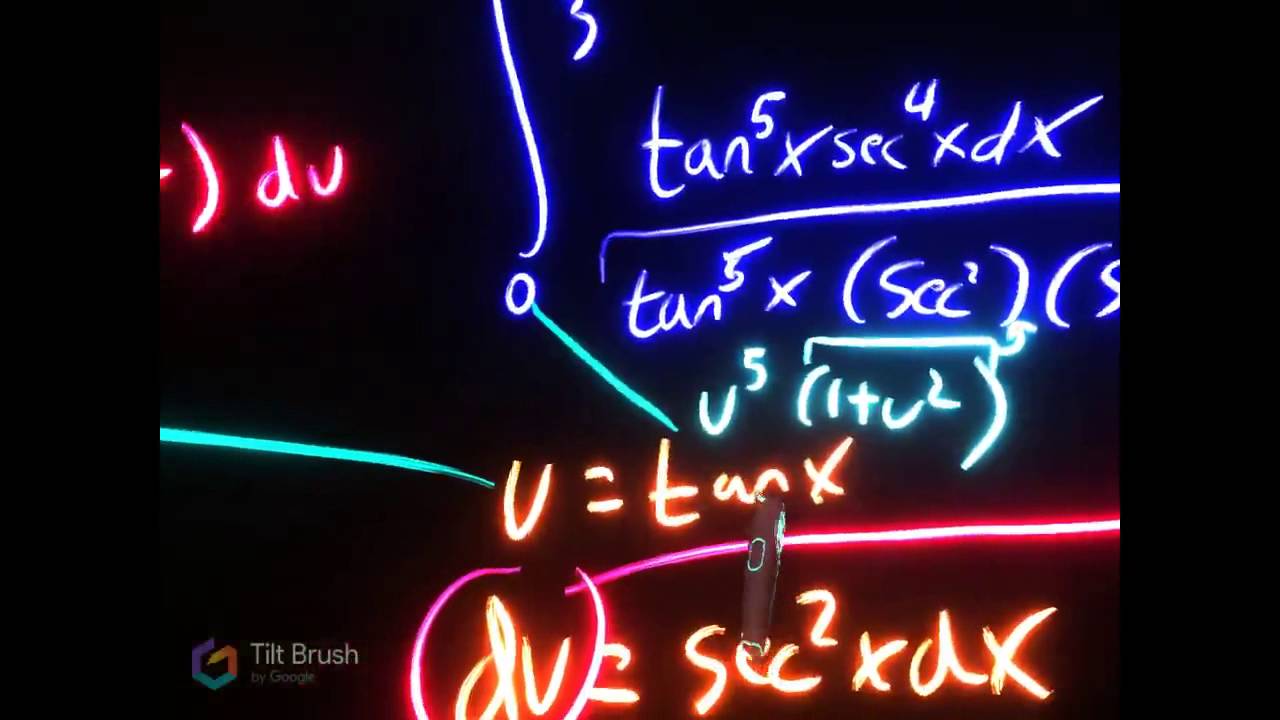 3
tan⁵x sec⁴x dx
) du
0
tan⁵x (sec²) (s
u⁵ (1+u²)
u = tan x
du = sec²x dx
Tilt Brush
by Google